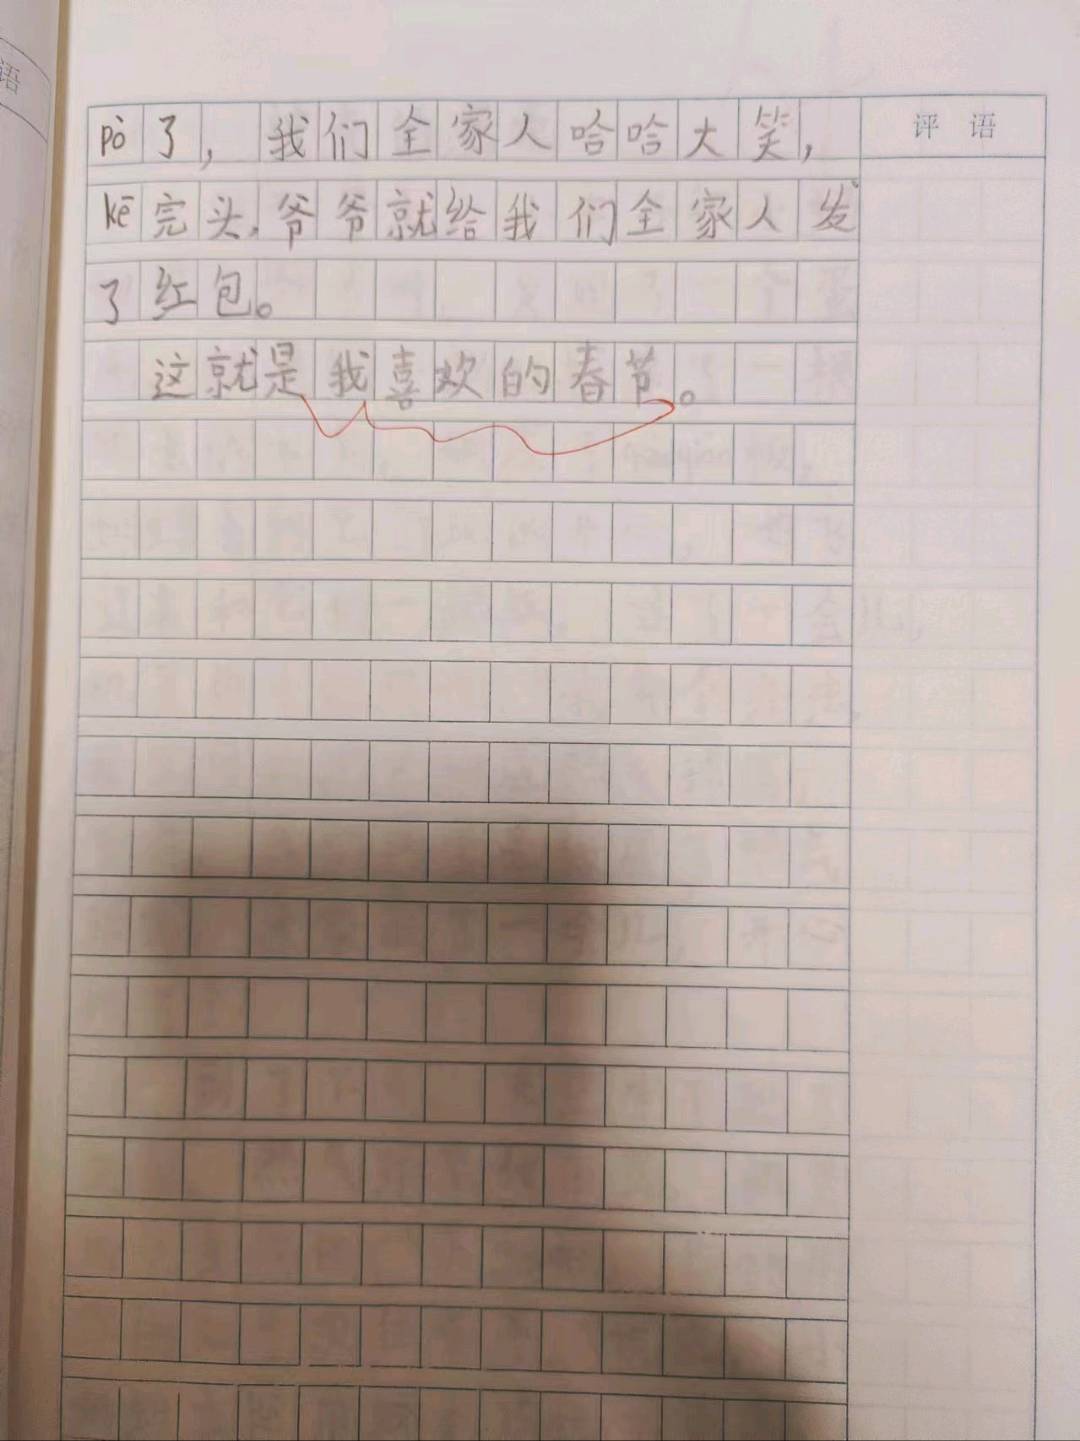 语
评 语
pò了，我们全家人哈哈大笑，
kē完头，爷爷就给我们全家人发
了红包。
这就是我喜欢的春节。